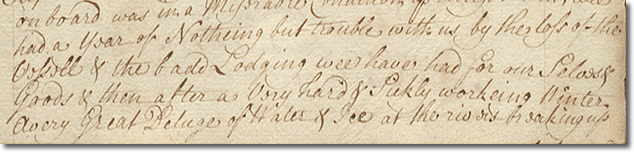 on board was in a Missrable Condition
had a Year of Notheing but trouble with us, by the loss of the
Vessell & the badd Lodging wee have had for our Selves &
Goods & then after a Very hard & Sickly workeing Winter
avery Great Deluge of Water & Ice at the rivers breaking up